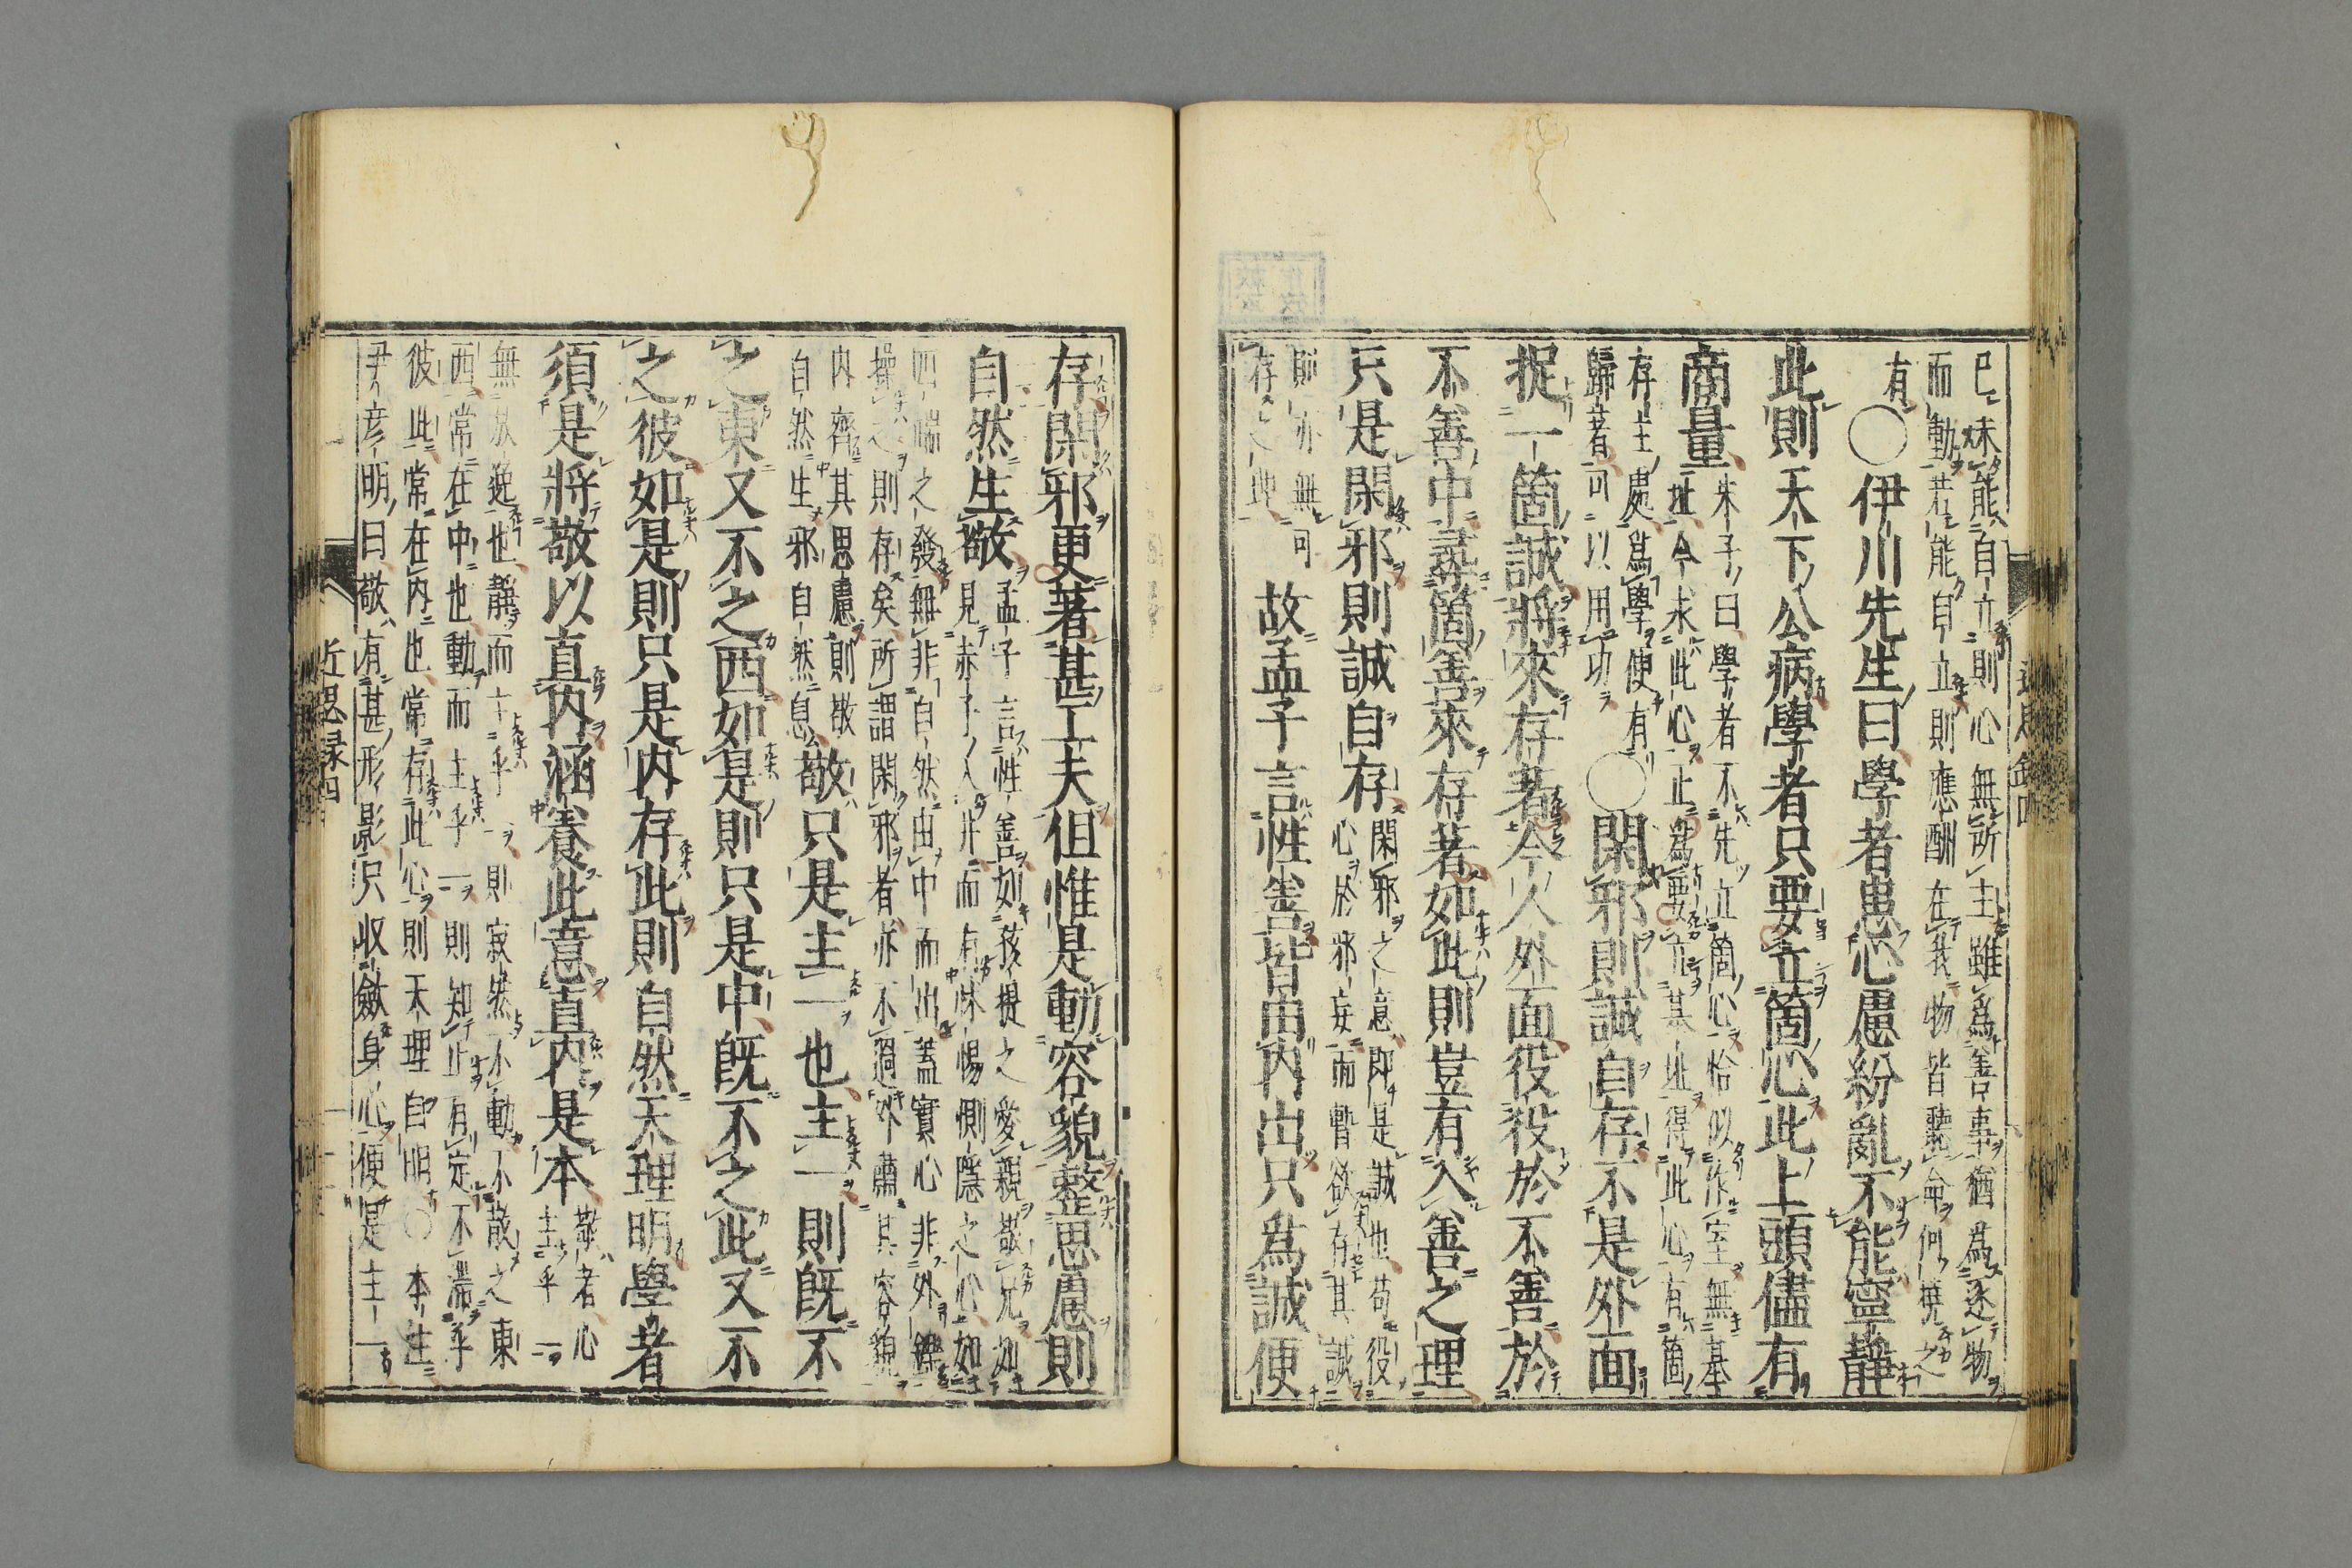 已未能自立則心無所主雖爲善事猶爲逐物
而動若能自立則應酬在我物皆聽命何撓之
有
○伊川先生曰學者患心慮紛亂不能寧靜
此則天下公病學者只要立箇心此上頭儘有
商量
朱子曰學者不先立箇心恰似作室無基
址今求此心正爲要立基址得此心有箇
存主處爲學便有
歸著可以用功
○閑邪則誠自存不是外面
捉一箇誠將來存著今人外面役役於不善於
不善中尋箇善來存著如此則豈有入善之理
只是閑邪則誠自存
閑邪之意即是誠也苟役
心於邪妄而暫欲存其誠
則亦無可
存之地
故孟子言性善皆由內出只爲誠便
存閑邪更著甚工夫但惟是動容貌整思慮則
自然生敬
孟子言性善如孩提之愛親敬兄如
見赤子入井而有怵惕惻隱之心如
四端之發無非自然由中而出蓋實心非外鑠
操之則存矣所謂閑邪者亦不過外肅其容貌
內齊其思慮則敬
自然生邪自然息
敬只是主一也主一則既不
之東又不之西如是則只是中既不之此又不
之彼如是則只是內存此則自然天理明學者
須是將敬以直內涵養此意直內是本
敬者心
主乎一
無放逸也靜而主乎一則寂然不動不散之東
西常在中也動而主乎一則知止有定不滯乎
彼此常在內也常存此心則天理自明○本註
尹彥明曰敬有甚形影只收斂身心便是主一
近思録四